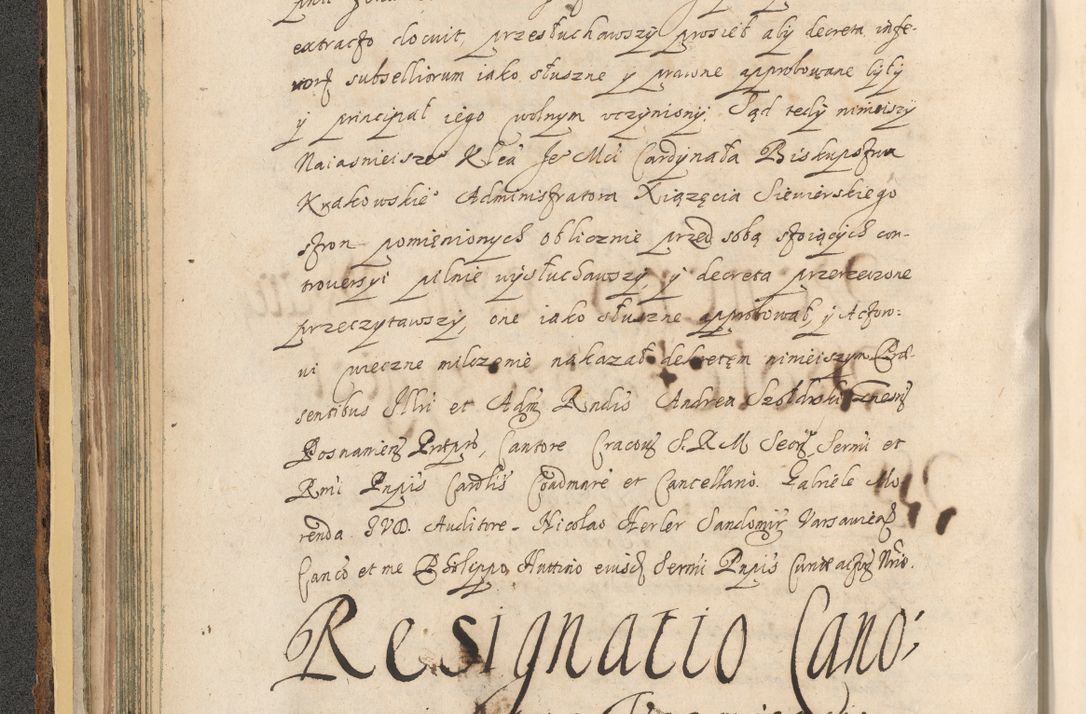 extracto docuit, przesłuchawszy prosieł aby decreta infe-
riorū subselliorum iako słuszne y prawne approbowane były
y principał iego wolnym vczyniony. Sąd tedy ninieiszy
Naiasnieiszeº Xcia Je Mci Cardynała Biskupstwa
Krakowskieº Administratora Xiązęcia Siewierskiego
stron pomienionych oblicznie przed sobą stoiących con-
troversyi pilnie wysłuchawszy, y decreta przerzeczone
przeczytawszy, one iako słuszne approbował, y Actoro-
wi wieczne milczenie nakazał decretem ninieiszym Præ-
sentibus Illri et Adm Rndis Andrea Szołdrski
Posnanień Prtpto, Cantore Cracoū S. R. M. Secr Sermi et
Rmi Pnpis Cardlis Coadmare et Cancellario. Gabriele Mo-
renda IVD. Auditore. Nicolao Herler Sandomir Varsavień
Canco et me Philippo Huttino eiusd Sermi Pnpis Curiæ actū Nrio.
Resignatio Cano: